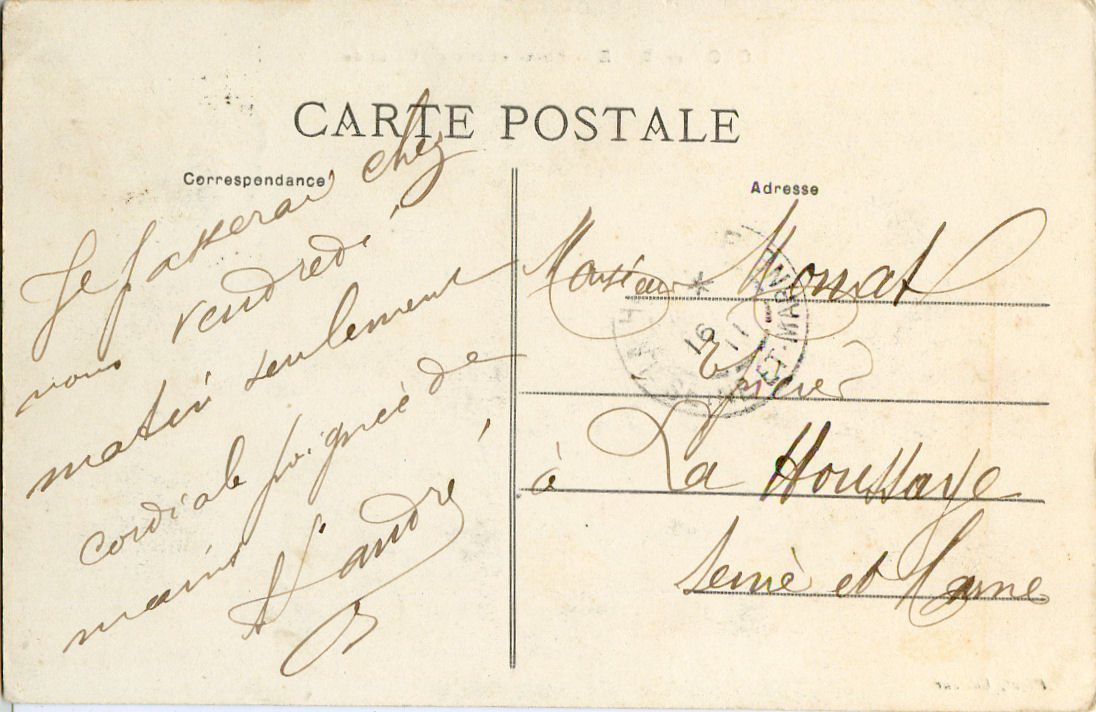 CARTE POSTALE
Correspondance
Je passerai chez
vous vendredi,
matin seulement
cordiale poignée de
mains
Adresse
Monsieur Monat
Epicier
à La Houssaye
Seine et Marne
16
11
ET-MARNE